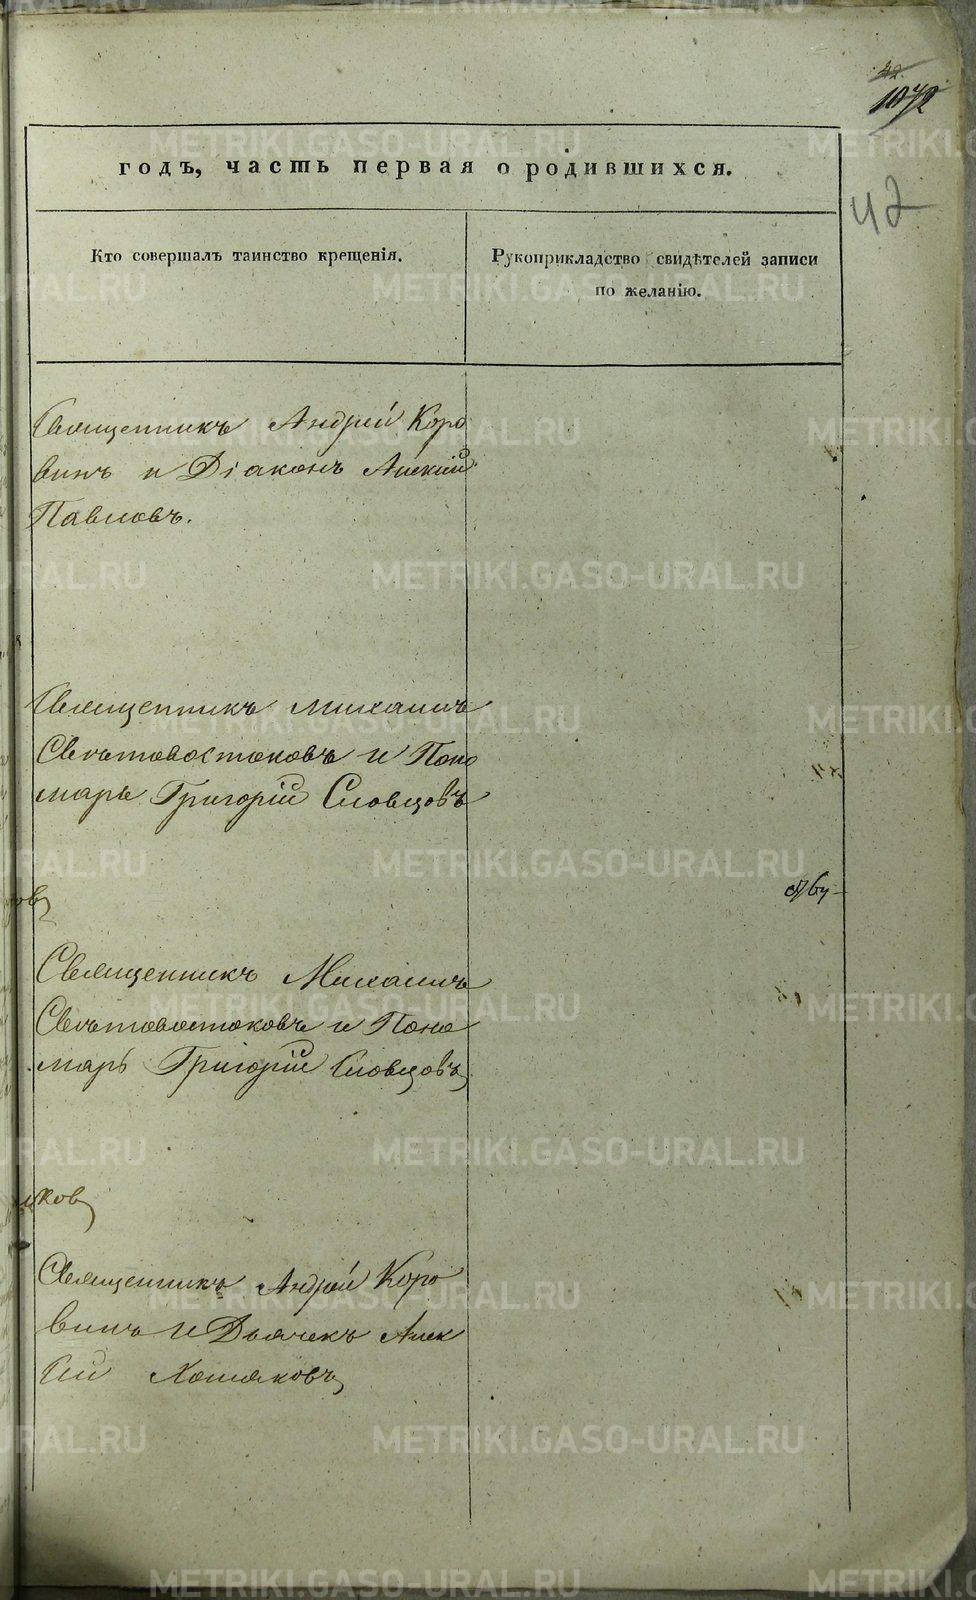 42
1072
годъ, часть первая о родившихся.
42
Кто совершалъ таинство крещенія.
Рукоприкладство свидѣтелей записи
по желанію.
Священникъ Андрей Коро
винъ и Діаконъ Алексій
Павловъ.
Священникъ Михаилъ
Свѣтовостоковъ и Поно
марь Григорій Словцовъ
Священникъ Михаилъ
Свѣтовостоковъ и Поно
марь Григорій Словцовъ
ков
Священникъ Андрей Коро
винъ и Дьячекъ Алек
сій Хомяковъ
METRIKI.GASO-URAL.RU